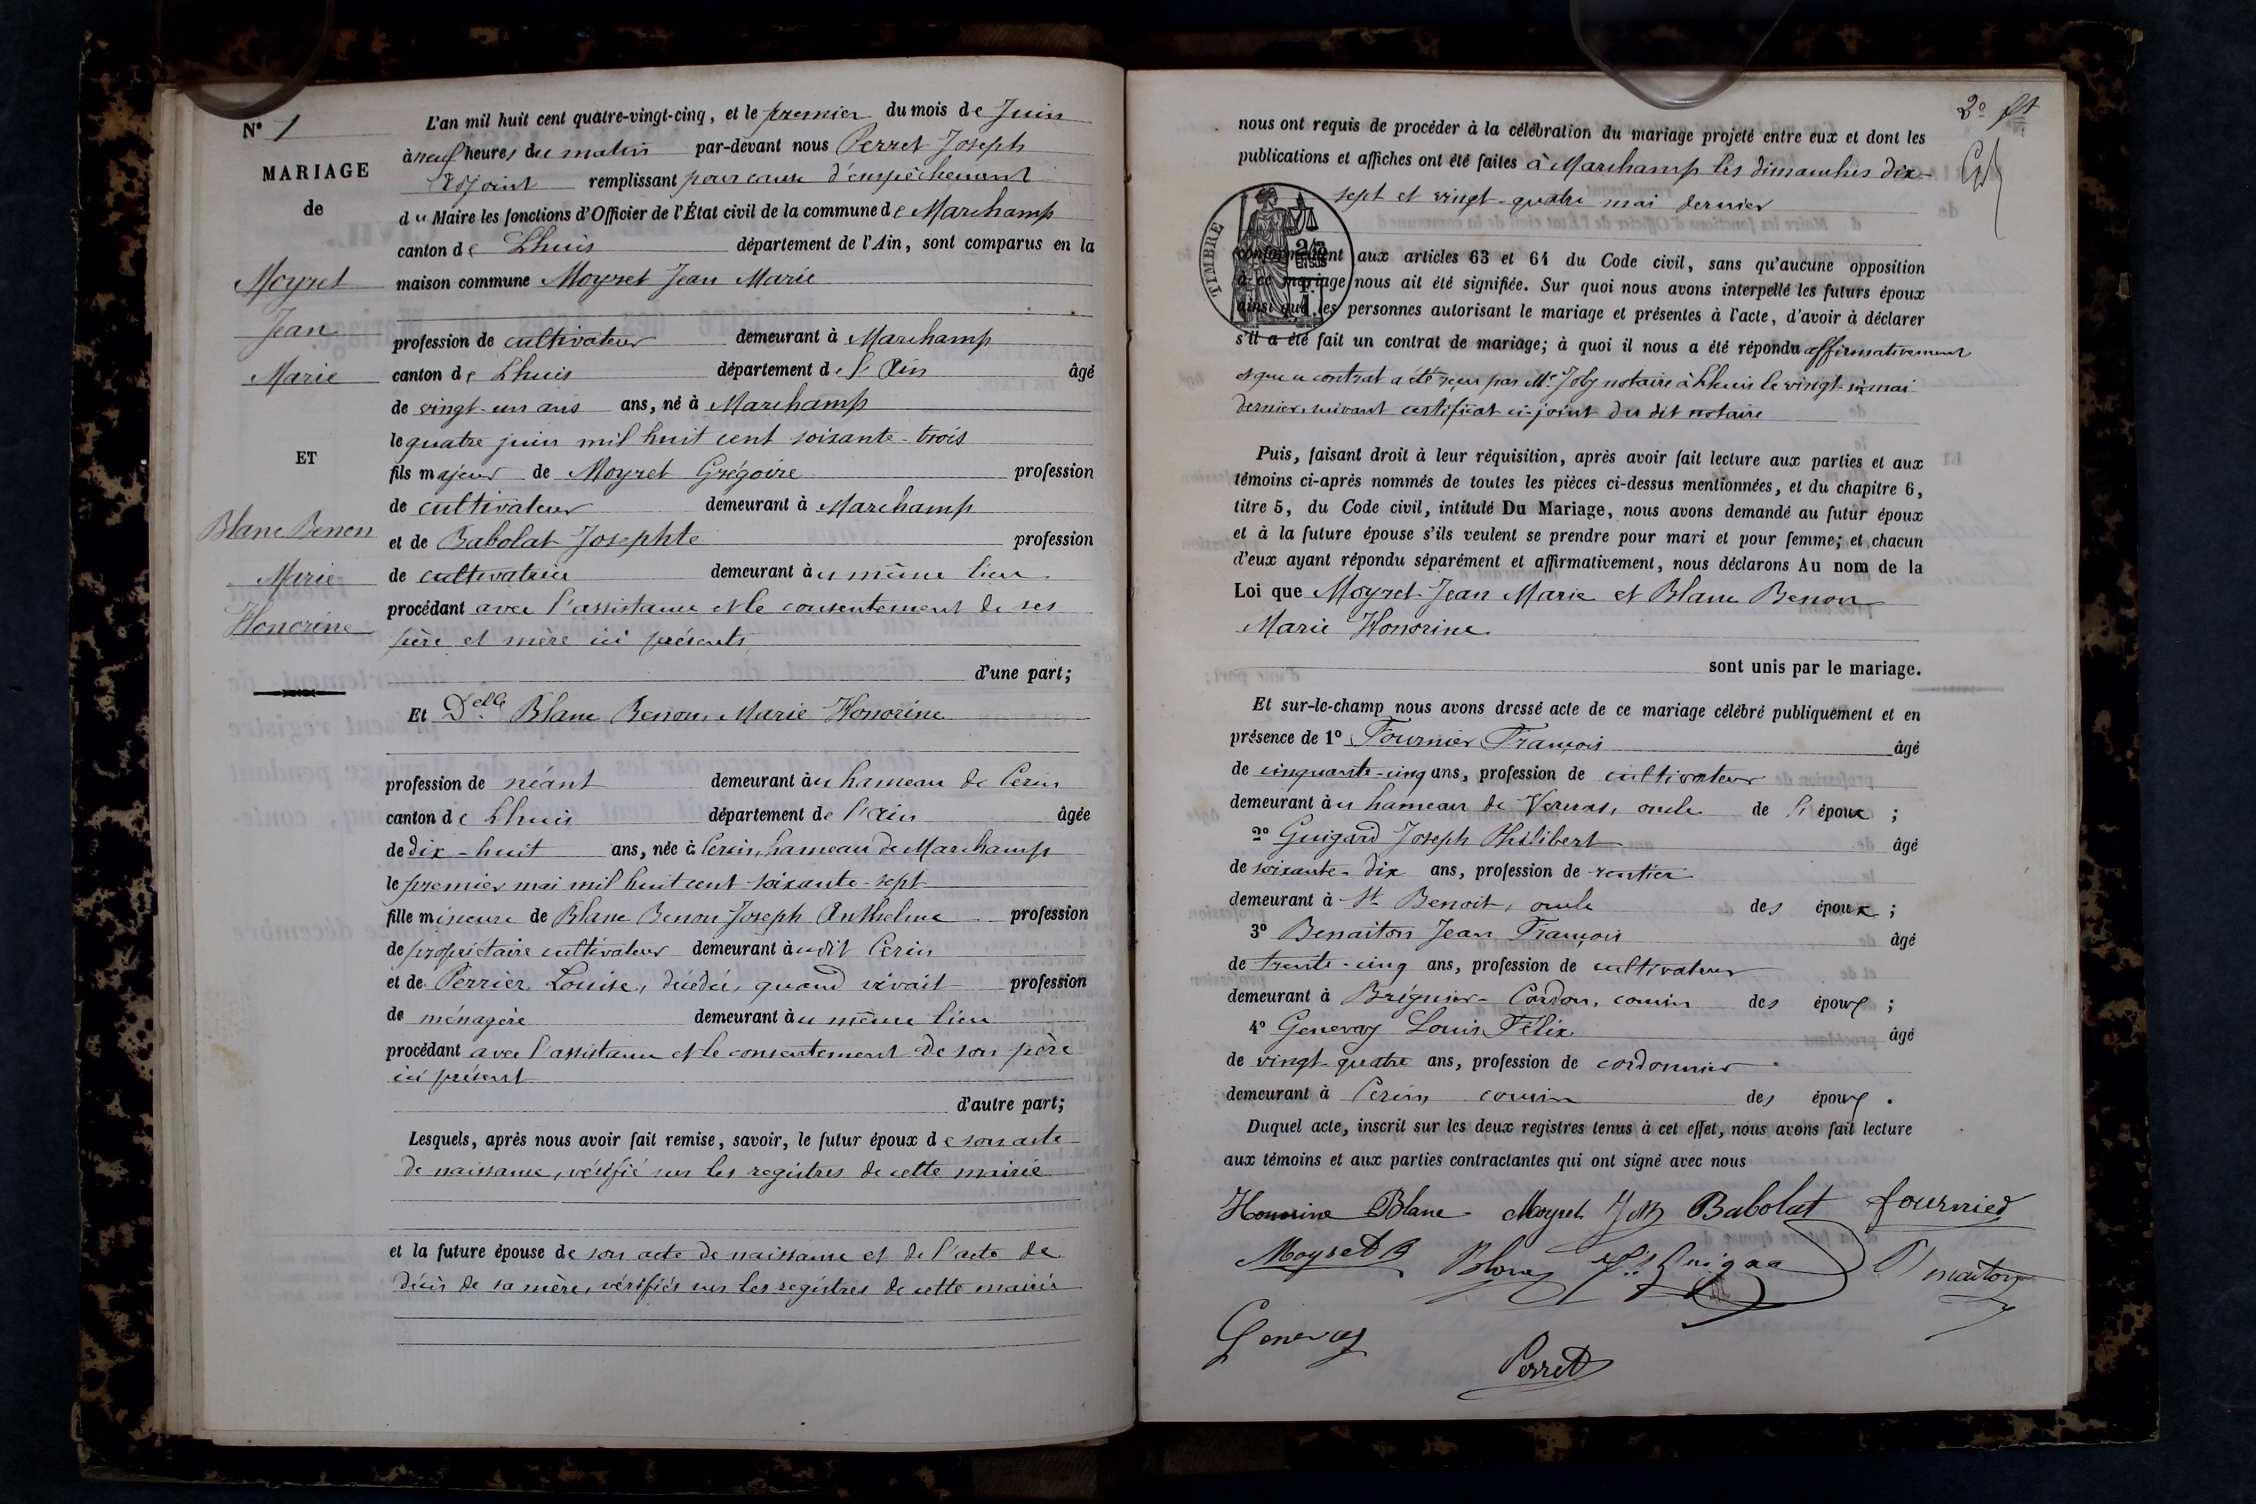 N° 1
MARIAGE
de
Moyret
Jean
Marie
ET
Blanc Benon
Marie
Honorine
L'an mil huit cent quatre-vingt-cinq, et le premier du mois de Juin
à neuf heures du matin par-devant nous Perret Joseph
Adjoint remplissant pour cause d'empêchement
du Maire les fonctions d'Officier de l'État civil de la commune de Marchamp
canton de Lhuis département de l'Ain, sont comparus en la
maison commune Moyret Jean Marie
profession de cultivateur demeurant à Marchamp
canton de Lhuis département de l'Ain âgé
de vingt-un ans ans, né à Marchamp
le quatre juin mil huit cent soixante-trois
fils majeur de Moyret Grégoire profession
de cultivateur demeurant à Marchamp
et de Babolat Josephte profession
de cultivatrice demeurant au même lieu
procédant avec l'assistance et le consentement de ses
père et mère ici présents
d'une part;
Et Delle Blanc Benon, Marie Honorine
profession de néant demeurant au hameau de Cerin
canton de Lhuis département de l'Ain âgée
de dix-huit ans, née à Cerin, hameau de Marchamp
le premier mai mil huit cent soixante-sept
fille mineure de Blanc Benon Joseph Anthelme profession
de propriétaire cultivateur demeurant audit Cerin
et de Perrier Louise, décédée, quand vivait profession
de ménagère demeurant au même lieu
procédant avec l'assistance et le consentement de son père
ici présent
d'autre part;
Lesquels, après nous avoir fait remise, savoir, le futur époux de son acte
de naissance, vérifié sur les registres de cette mairie
et la future épouse de son acte de naissance et de l'acte de
décès de sa mère, vérifiés sur les registres de cette mairie
2°
nous ont requis de procéder à la célébration du mariage projeté entre eux et dont les
publications et affiches ont été faites à Marchamp les dimanches dix-
sept et vingt-quatre mai dernier
TIMBRE
conformément aux articles 63 et 64 du Code civil, sans qu'aucune opposition
à ce mariage nous ait été signifiée. Sur quoi nous avons interpellé les futurs époux
ainsi que les personnes autorisant le mariage et présentes à l'acte, d'avoir à déclarer
s'il a été fait un contrat de mariage; à quoi il nous a été répondu affirmativement
et que ce contrat a été reçu par Me Joly notaire à Lhuis le vingt-six mai
dernier, suivant certificat ci-joint du dit notaire
Puis, faisant droit à leur réquisition, après avoir fait lecture aux parties et aux
témoins ci-après nommés de toutes les pièces ci-dessus mentionnées, et du chapitre 6,
titre 5, du Code civil, intitulé Du Mariage, nous avons demandé au futur époux
et à la future épouse s'ils veulent se prendre pour mari et pour femme; et chacun
d'eux ayant répondu séparément et affirmativement, nous déclarons Au nom de la
Loi que Moyret Jean Marie et Blanc Benon
Marie Honorine
sont unis par le mariage.
Et sur-le-champ nous avons dressé acte de ce mariage célébré publiquement et en
présence de 1° Fournier François âgé
de cinquante-cinq ans, profession de cultivateur
demeurant au hameau de oncle de l' époux ;
2° Guigard Joseph Philibert âgé
de soixante-dix ans, profession de rentier
demeurant à St Benoit, oncle des époux ;
3° Benaiton Jean François âgé
de trente-cinq ans, profession de cultivateur
demeurant à Brégnier-Cordon, cousin des époux ;
4° Genevay Louis Félix âgé
de vingt-quatre ans, profession de cordonnier
demeurant à Cerin, cousin des époux .
Duquel acte, inscrit sur les deux registres tenus à cet effet, nous avons fait lecture
aux témoins et aux parties contractantes qui ont signé avec nous
Honorine Blanc Moyret Babolat fournier
Moyret Blanc
Genevay
Perret